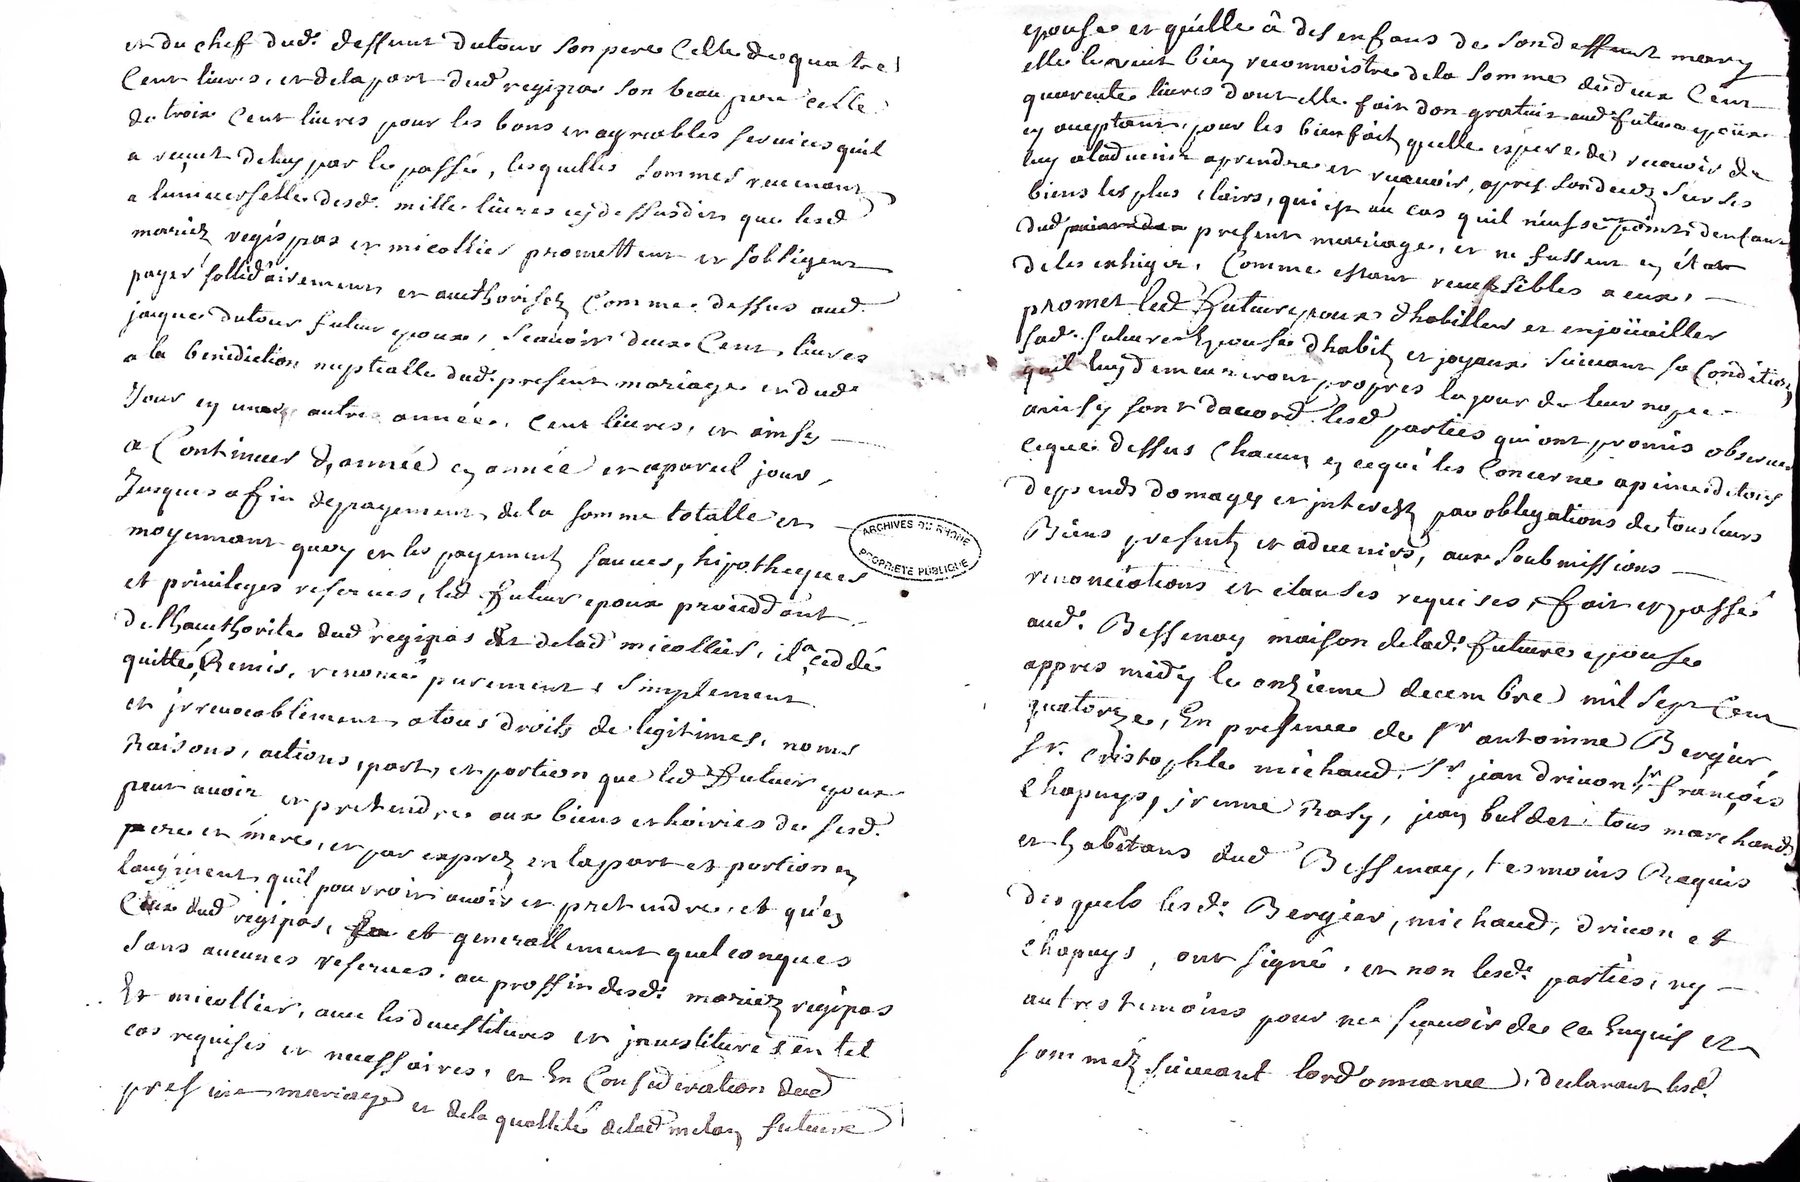 et du cheff dud. deffunt dutour son pere Celle de quatre
Cent livres, et de la part dud regipas son beau pere celle
de trois Cent livres pour les bons et agreables services quil
a reçut de luy par le passé, lesquelles sommes revenant
a luniverselle desd. mille livres cy dessus dit que lesd
mariéz regispas et micollier promettent et sobligent
payer sollidairement et authoriséz Comme dessus aud.
jacque dutour futur epoux, scavoir deux Cent livres
a la benidiction nuptialle dud. present mariage et dud.
Jour en une autre année, Cent livres, et ainsy
a Continuer d'année en année et a pareil jour,
Jusques a fin de payement de la somme totalle et
moyennant quoy et les payements sauves, hipotheques
et privileges reserves, led futur epoux proceddant
de lhauthorité dud regipas et de lad micollier, il a ceddé
quitté, Remis, renoncé purement & Simplement
et jrrevocablement a tous droits de legitimes, noms
Raisons, actions, part, et portion que led Futur epoux
peut avoir et pretendre aux biens et hoiries de sesd.
pere et mere, et par exprez en la part et portion en
laugment quil pourroit avoir et pretendre, et qu'en
Ceux dud regipas, et generallement quelconques
sans aucunes reserves, au proffit desd. mariéz regipas
Et micollier, avec les devestitures et jnvestitures en tel
cas requises et necessaires, et En Consideration dud
present mariage et de la quallité de lad melon future
epouse et qu'elle â des enfans de son deffunt mary
elle le veut bien reconnoistre de la somme de deux Cent
quarente livres dont elle fait don gratuit aud. futur epoux
en aceptant, pour les bienfait quelle espere de recevoir de
luy a ladvenir a prendre et recevoir, apres son decez sur ses
biens les plus clairs, qui est au cas quil n'eusse point denfant
dud present mariage, et ne fussent en état
de les exhiger, Comme estant reversibles a eux,
promet led Futur epoux d'habiller et enjoüailler
sad. future Epouse d'habitz et joyaux suivant sa Condition
quil luy demeureront propres le jour de leur nopce
ainsy sont daccord lesd parties qui ont promis observer
ce que dessus Chacun en ce qui les Concerne a peine de tous
despends domages et jnterestz par obligations de tous leurs
Biens presents et advenirs, aux Soubmissions
renonciations et clauses requises, fait et passé
aud. Bessenay maison de lad. future epouse
appres midy le onzieme decembre mil Sept Cent
quatorze, En presence de sr antoinne Bergier,
sr. Cristophle michaud, sr jean drivon, sr françois
Chapuys, jrenne Rasy, jean buldet tous marchands
et habitans dud Bessenay, tesmoins Requis
desquels lesd. Bergier, michaud, drivon et
Chapuys, ont signé, et non lesd. parties, ny
autres temoins pour ne sçavoir de ce Enquis et
sommez suivant lordonnance, declarant lesd.
ARCHIVES DU RHONE
PROPRIÉTÉ PUBLIQUE